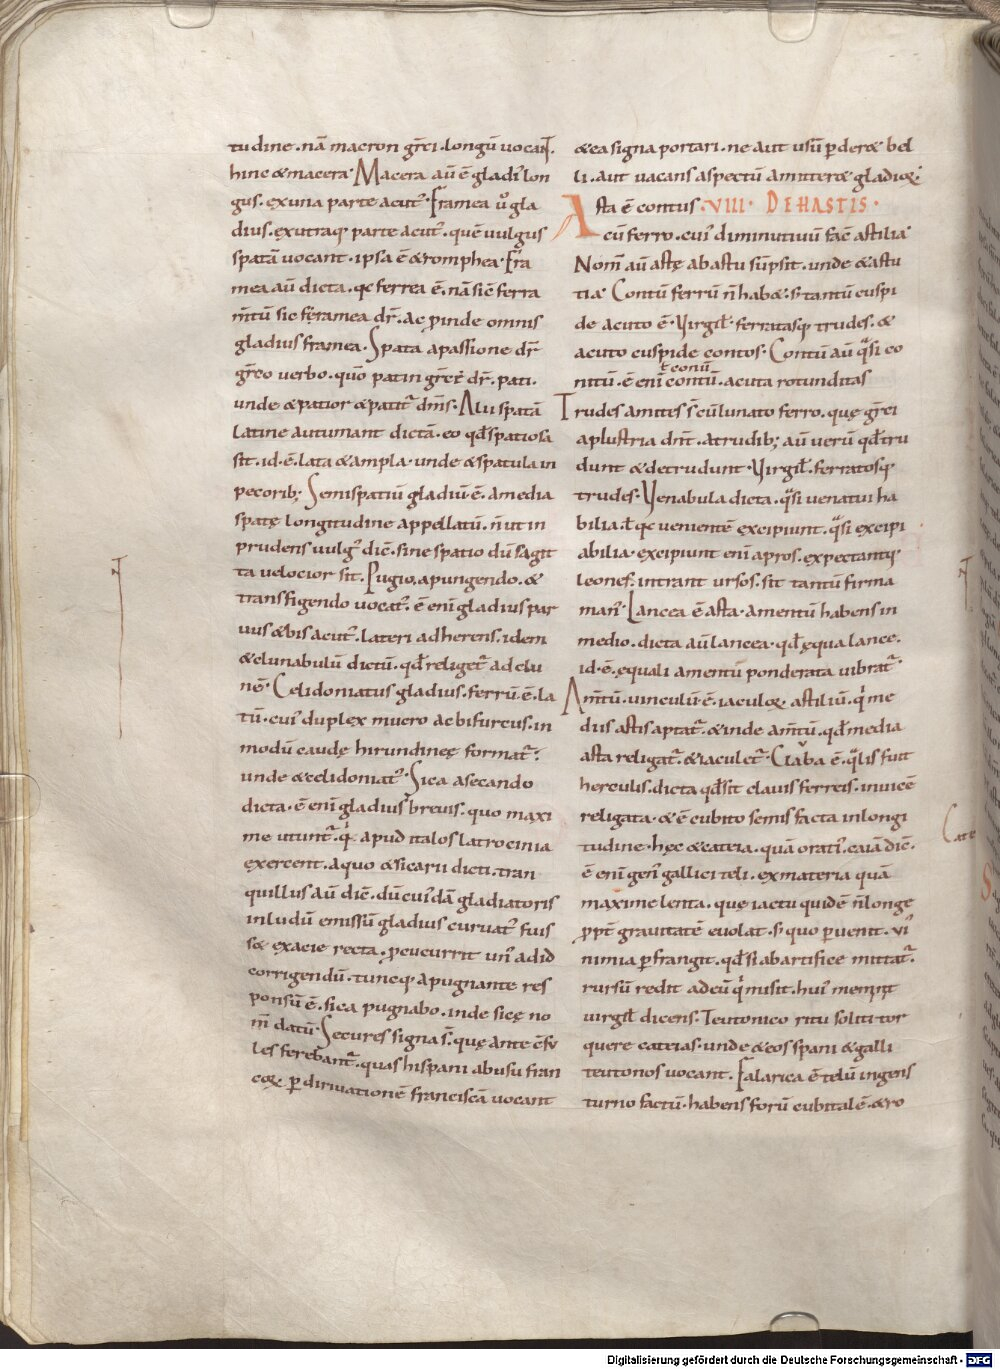 tudine. nā macron grēi. longū vocaɴ̄t.
hinc & macera. Macera aū ē gladiꝰ lon
gus. ex una parte acutꝰ. Framea ůo gla
dius. ex utraq; parte acutꝰ. quē vulgus
spatā vocant. ipsa ē & romphea. Fra
mea aū dicta. qꝛ ferrea ē. nā sic̄ ferra
m̄tū sic fęramea dr̄. ac ꝓinde omnis
gladius framea. Spata a passione dr̄
grēo verbo. quō patin grēcē dr̄. pati.
unde & patior & patitꝰ dm̄s. Alii spatā
latine autumant dictā. eo qđ spatiosa
sit. id. ē. lata & ampla. unde & spatula in
pecorib;. Semispatiū gladiū ē. a media
spatę longitudine appellatū. n̄ ut in
prudens vulgꝰ dic̄. sine spatio. dū sagit
ta velocior sit. Pugio. a pungendo. &
transfigendo vocatꝰ. ē eni gladius par
vus & bis acutꝰ. lateri adherens. idem
& clunabulū dictū. qđ religetꝰ ad clu
nē. Celidoniatus gladius. ferrū. ē. la
tū. cuiꝰ duplex mucro ac bifurcus. in
modū caudę hirundinęę formatꝰ.
unde & celidoniatꝰ. Sica a secando
dicta. ē eni gladius brevis. quo maxi
me utuntꝰ. qⁱ apud italos latrocinia
exercent. a quo & sicarii dicti. tran
quillus aū dic̄. dū cuidā gladiatoris
in ludū emissū gladius curvatꝰ fuis
s& ex acie recta. ꝓcucurrit unꝰ ad id
corrigendū. tuncq; a pugnante res
ponsū ē. sica pugnabo. inde sicę no
m̄ datū. Secures signa s̄. quę ante c̄sv
les ferebantꝰ. quas hispani ab usu fran
coꝝ ꝑ dirivationē franciscā vocant
& ea signa portari. ne aut usū ꝑder& bel
li. aut vacans aspectū amitter& gladioꝝ.
Asta ē contus .VIII. DE HASTIS.
cū ferro. cuiꝰ diminutivū fac̄ astilia.
Nom̄ aū astę ab astu sūpsit. unde & astu
tia. Contū ferrū n̄ hab&. s; tantū cuspi
de acuto ē. Virgiꝉ. ferratasq; trudes. &
acuto cuspide contos. Contū aū qͣsi co
ꝉ conū
nitū. ē eni contū. acuta rotunditas
Trudes amites s̄ cū lunato ferro. quę grēi
aplustria dn̄t. A trudib; aū verū qđ tru
dunt & detrudunt. Virgiꝉ. ferratosq;
trudes. Venabula dicta. qͣsi venatui ha
bilia. ꝉ qꝛ venientē excipiunt. qͣsi excipi
abilia. excipiunt eni apros. expectantq;
leones. intrant ursos. sit tantū firma
manꝰ. Lancea ē asta. amentū habens in
medio. dicta aū lancea. qđ ęqua lance.
id. ē. ęquali amentū ponderata vibratꝰ.
Am̄tū. vinculū. ē. iaculoꝝ astiliū. qⁱ me
diis astis aptatꝰ. & inde am̄tū. qđ media
asta religatꝰ. & iaculetꝰ. Claba ē. qͣlis fuit
herculis. dicta qđ sit clavis ferreis. invicē
religata. & ē cubito semis facta in longi
tudine. hęc & cateia. quā oratiꝰ. caiā dic̄.
ē eni genꝰ gallici teli. ex materia quā
maxime lenta. quę iactu quidē n̄ longe
ꝓpt̄ gravitatē evolat. s; quo ꝑvenit. vi
nimia ꝑfrangit. qđ si ab artifice mittatꝰ.
rursū redit ad eū qⁱ misit. huiꝰ memīnit
virgiꝉ dicens. Teutonico ritu soliti tor
quere cateias. unde & eos spani & galli
teutonos vocant. Falarica ē telū ingens
turno factū. habens forū cubitalē. & ro
Digitalisierung gefördert durch die Deutsche Forschungsgemeinschaft - DFG